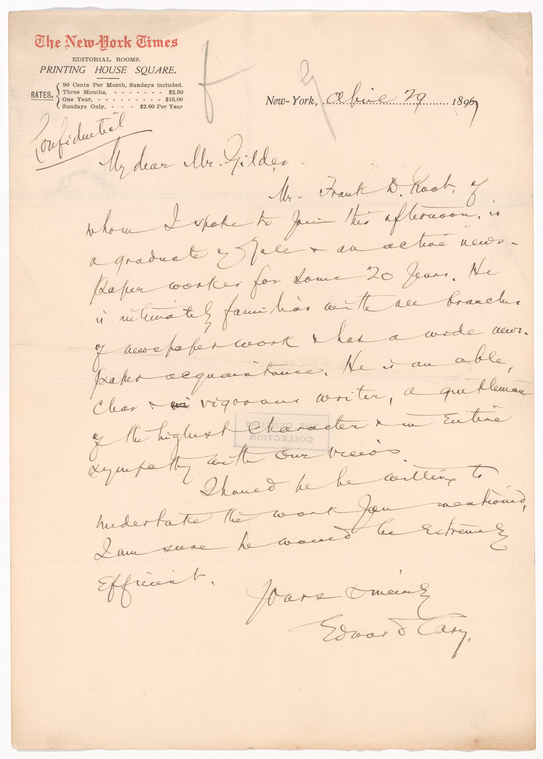 The New-York Times
EDITORIAL ROOMS.
PRINTING HOUSE SQUARE.
RATES.
90 Cents Per Month, Sundays included.
Three Months, - - - - - - - $2.50
One Year, - - - - - - - - - $10.00
Sundays Only, - - - - $2.00 Per Year
New-York, April 29 1897
Confidential
My dear Mr. Gilder.
Mr. Frank D. Root, of
whom I spoke to you this afternoon, is
a graduate of Yale & an active news-
paper worker for some 20 years. He
is intimately familiar with all branches
of newspaper work & has a wide news-
paper acquaintance. He is an able,
clear & vigorous writer, a gentleman
of the highest character & in entire
sympathy with our views.
Should he be willing to
undertake the work you mentioned,
I am sure he would be extremely
efficient.
Yours sincerely
Edward Cary.
THE CENTURY
COLLECTION